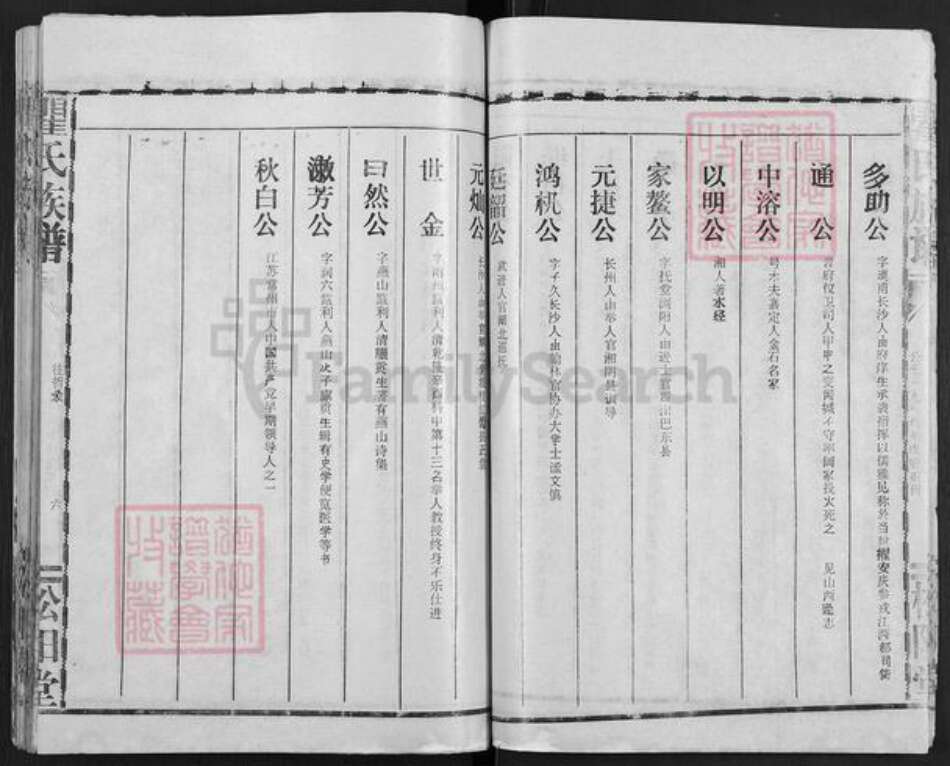 多助公
字溥南长沙人由府庠生承袭指挥以儒雅见称外当世擢安庆参戎江西都司佥
通公
府仪卫司人甲申之变芮城不守举阖家投火死之 见山西通志
中溶公
号木夫嘉定人金石名家
以明公
湘人著水经
家鏊公
字抚堂浏阳人由进士官四川巴东县
元捷公
长州人由举人官湘阴县训导
鸿机公
字子久长沙人由翰林官协办大学士谥文慎
廷韶公
武进人官湖北道氏
元灿公
世金
字南州监利人清乾隆辛酉科中第十三名举人教授终身不乐仕进
曰然公
字燕山监利人清骊贡生著有燕山诗集
澂芳公
字润六监利人燕山次子廪贡生辑有史学便览医学等书
秋白公
江苏常州市人中国共产党早期领导人之一
瞿氏族谱
往哲录
六
松田堂
犹他家谱学会收藏
犹他家谱学会收藏
FamilySearch